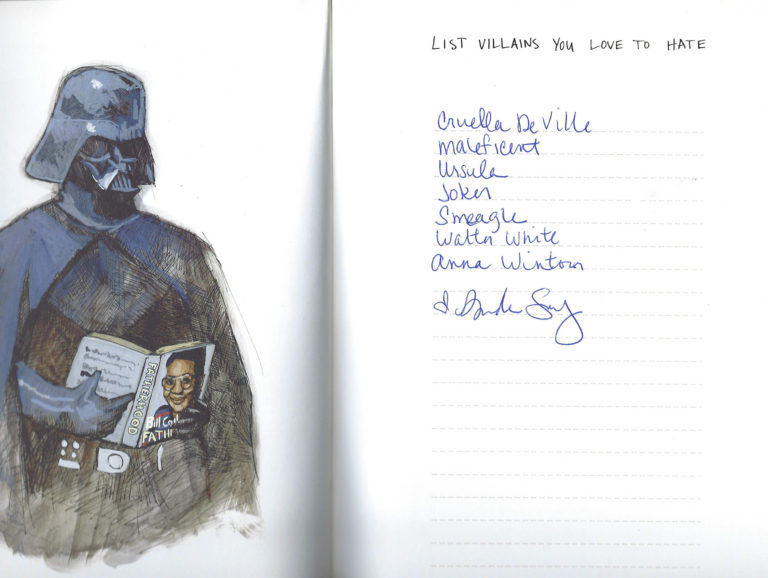 FATHERHOOD
Bill Cos
FATH
LIST VILLAINS YOU LOVE TO HATE
Cruella De Ville
Maleficent
Ursula
Joker
Smeagle
Walter White
Anna Wintour